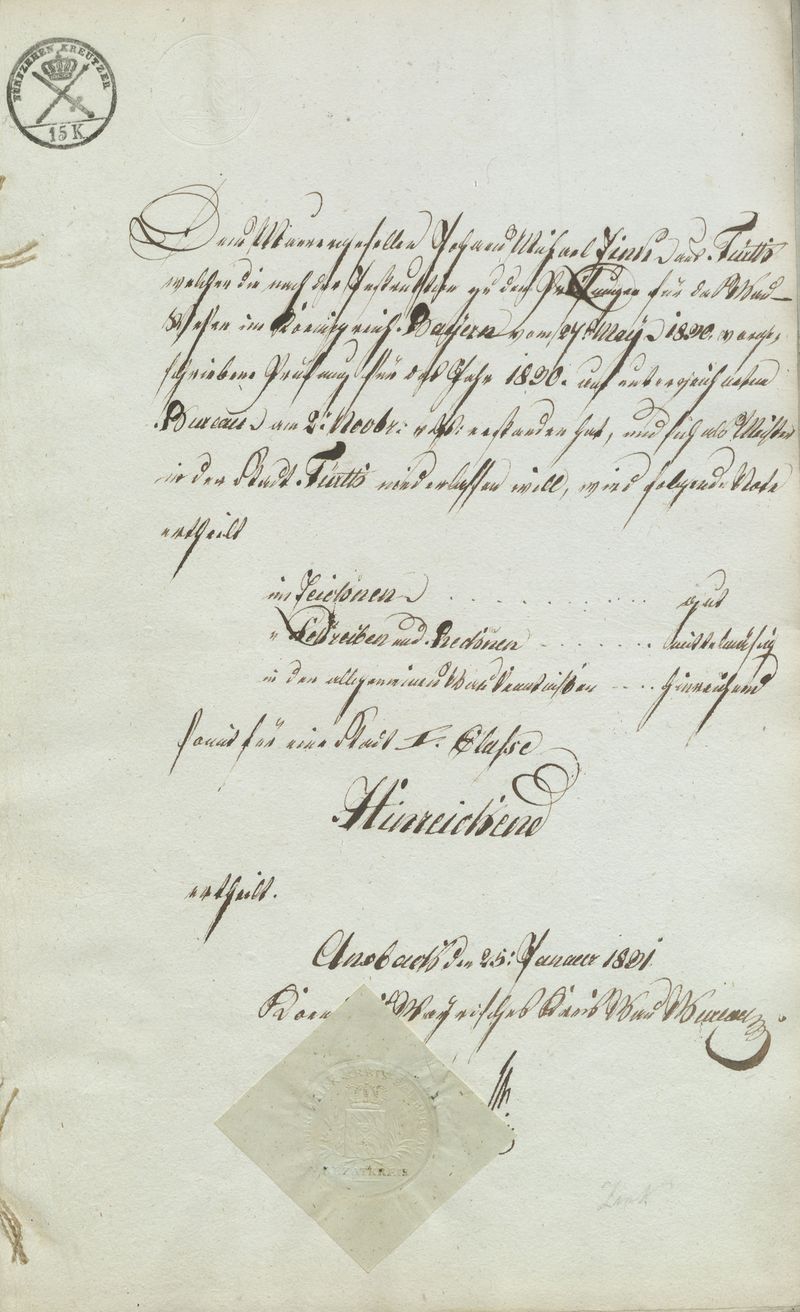 FÜNFZEHEN KREUTZER
15 K
Dem Maurergesellen Johann Michael Zink aus Fürth
welcher die nach der Instruktion zu den Prüfungen für das Bau-
Wesen im Koenigreich Bayern vom 27t May 1830. vorge-
schriebene Prüfung für das Jahr 1830. am unterzeichneten
Bureau am 2. Novbr: erstanden hat, und sich als Meister
in der Stadt Fürth niederlassen will, wird folgende Note
ertheilt
im Zeichnen . . . . . . . . . . . . gut
" Schreiben und Rechnen . . . . . . . mittelmäsig
in den allgemeinen Baukenntnißen . . . . hinreichend
somit für eine Stadt I. Classe
Hinreichend
ertheilt.
Ansbach den 25. Januar 1831.
Bayrisches Kreis Bau Bureau
REZATKREIS
Zink